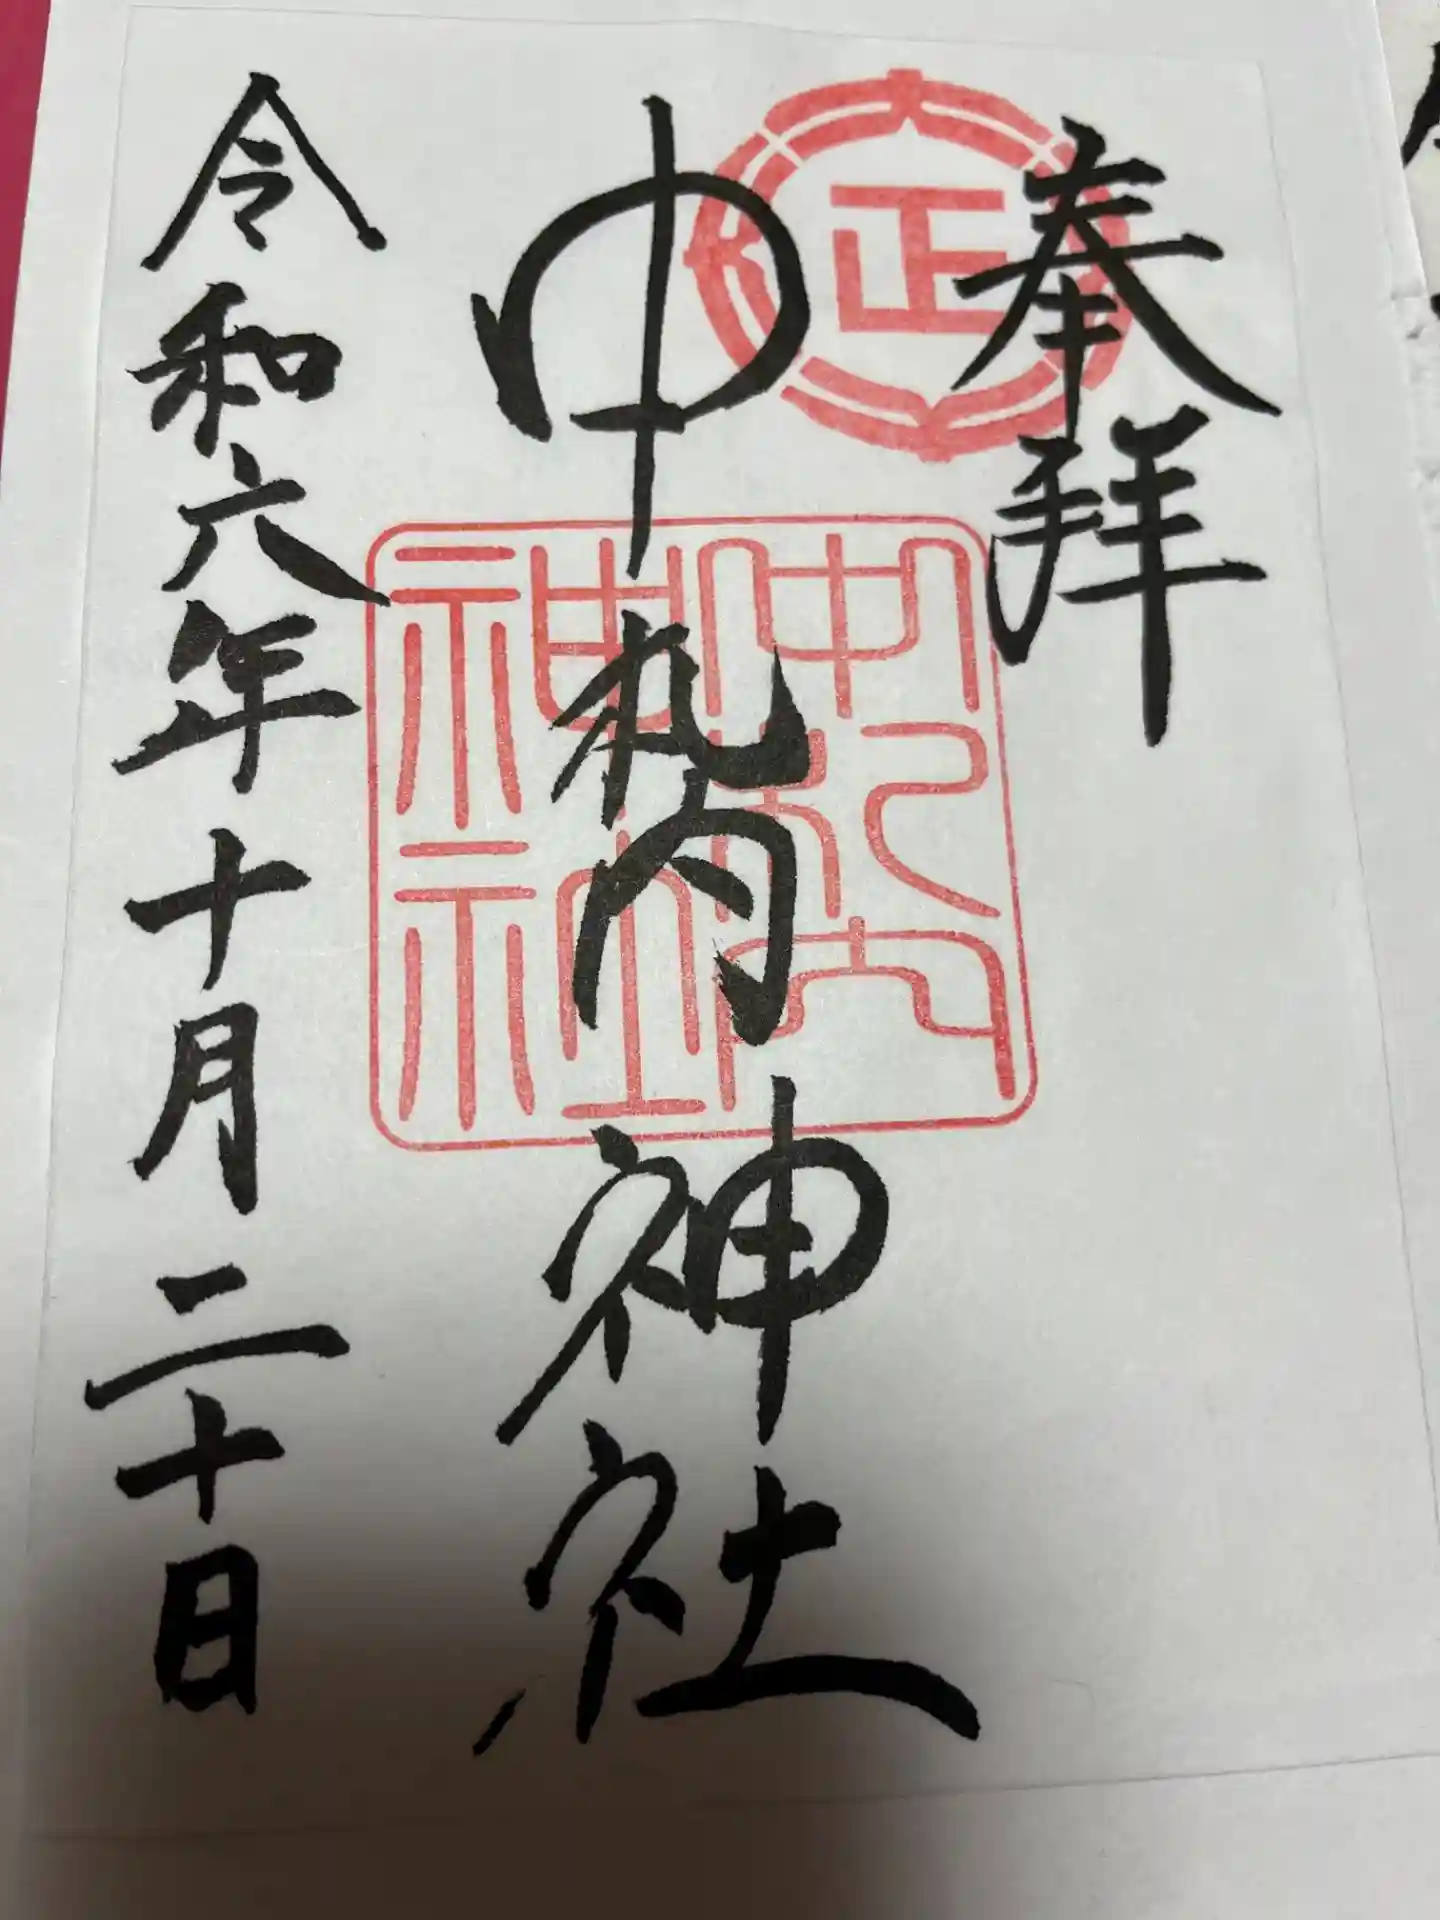 奉拝
正
中札内神社
中札内
神社
令和六年十月二十日